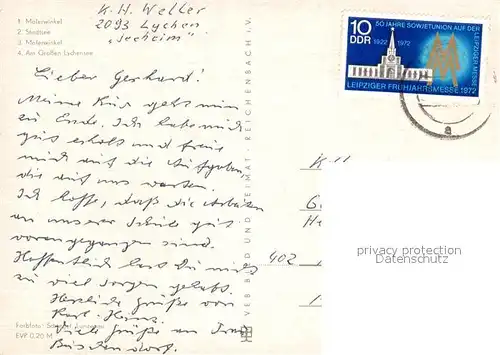 K. H. Weller
2093 Lychen
"Seeheim"
1. Malerwinkel
2. Stadtsee
3. Malerwinkel
4. Am Großen Lychensee
50 JAHRE SOWJETUNION AUF DER LEIPZIGER MESSE
10
DDR
1922 1972
LEIPZIGER FRÜHJAHRSMESSE 1972
Lieber Gerhard!
Meine Kur geht nun
zu Ende. Ich habe mich
gut erholt und freue
mich auf die Aufgaben,
die auf uns warten.
Ich hoffe, daß die Arbeiten
an unserer Schule gut
vorangegangen sind.
Hoffentlich hast Du nicht
zu viel Sorgen gehabt.
Herzliche Grüße von
Karl-Heinz.
Viele Grüße an
VEB BILD UND HEIMAT · REICHENBACH I. V.
402
privacy protection
Datenschutz
Farbfoto:
EVP 0,20 M